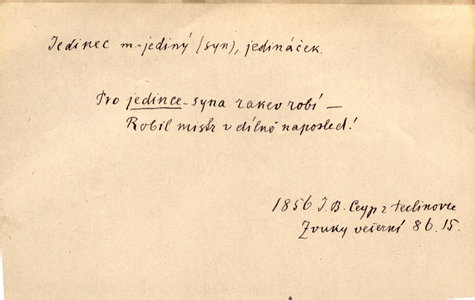 Jedinec m-jediný (syn), jedináček.
Pro jedince-syna rakev robí —
Robil mistr v dílně naposled!
1856 J. B. Ceyp z Peclinovce
Zvuky večerní 86. 15.